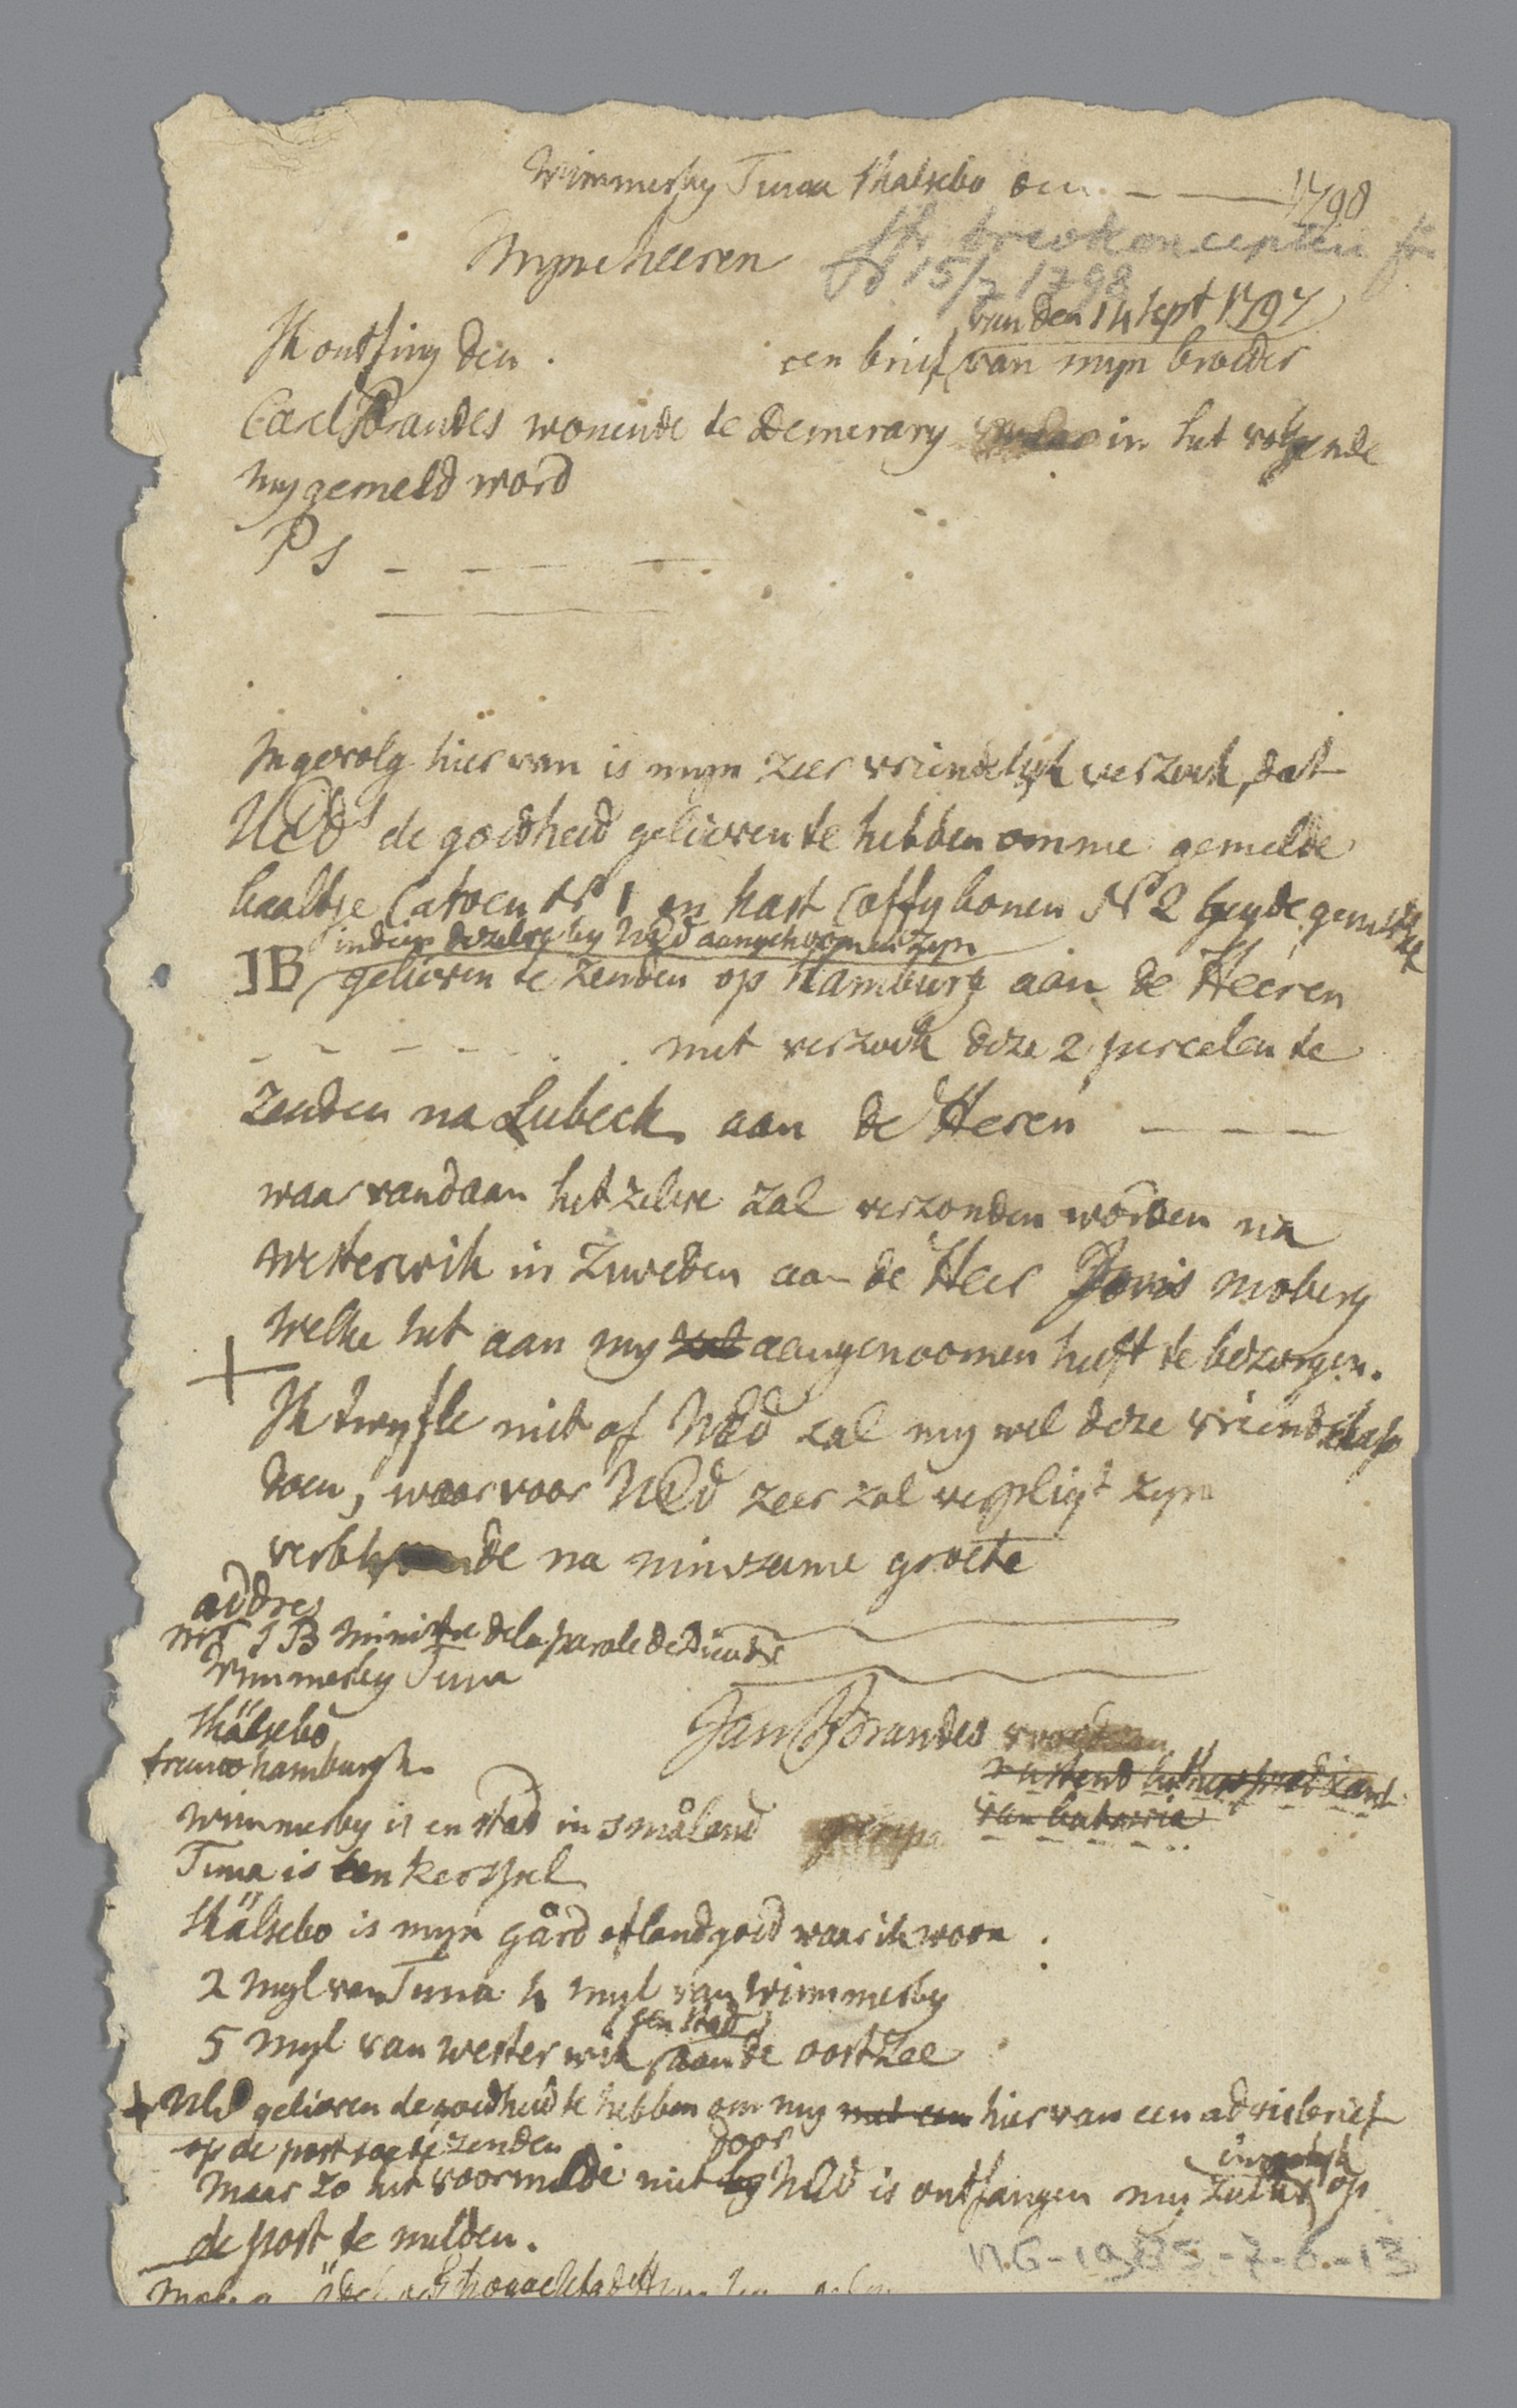 Wimmerby Tuna Skalsebo den - — 1798
Mynheeren
brevkoncepten från
15/7 1798
van den 14 sept 1797
Ik ontfing den . een brief van myn broeder
Carl Brandes wonende te Demerary in het volgende
my gemeld word
PS - - — —
Ingevolg hier van is myn zeer vriendelyk verzoek, dat
UEDs de goedheid gelieven te hebben omme gemelde
baaltje Catoen No 1 en kast Coffybonen No 2 beyde gemerkt
indien dezelve by UED aangekoomen zyn
IB gelieven te zenden op Hamburg aan de Heeren
- - - - . . . met verzoek deze 2 percelen te
zenden na Lubeck aan de Heren — — —
waar vandaan het zelve zal verzonden worden na
Westerwik in Zweden aan de Heer Joris Moberg
welke het aan my zal aangenoomen heeft te bezorgen.
+
Ik twyfle niet of UED zal my wel deze vriendschap
doen, waarvoor UED zeer zal verpligt zyn
verblyvende na minzame groete
addres
Mr J B Ministre de la parole de Dieu de
Wimmerby Tuna
Skälsebo
franco hamburgh.
Jan Brandes
rustend luthers predikant
van batavia
Wimmerby is en stad in småland
Tuna is een kerspel
Skälsebo is myn gård of landgoed waar ik woon .
2 myl van Tuna 4 myl van Wimmerby
een stad
5 myl van westerwik aan de oostzee
+ UED gelieven de goedheid te hebben om my met een hier van een advisbrief
op de post toe te zenden
door
Maar zo het voormelde niet by UED is ontfangen my zulks insgelyk op
de post te melden.
NG-1985-7-6-13